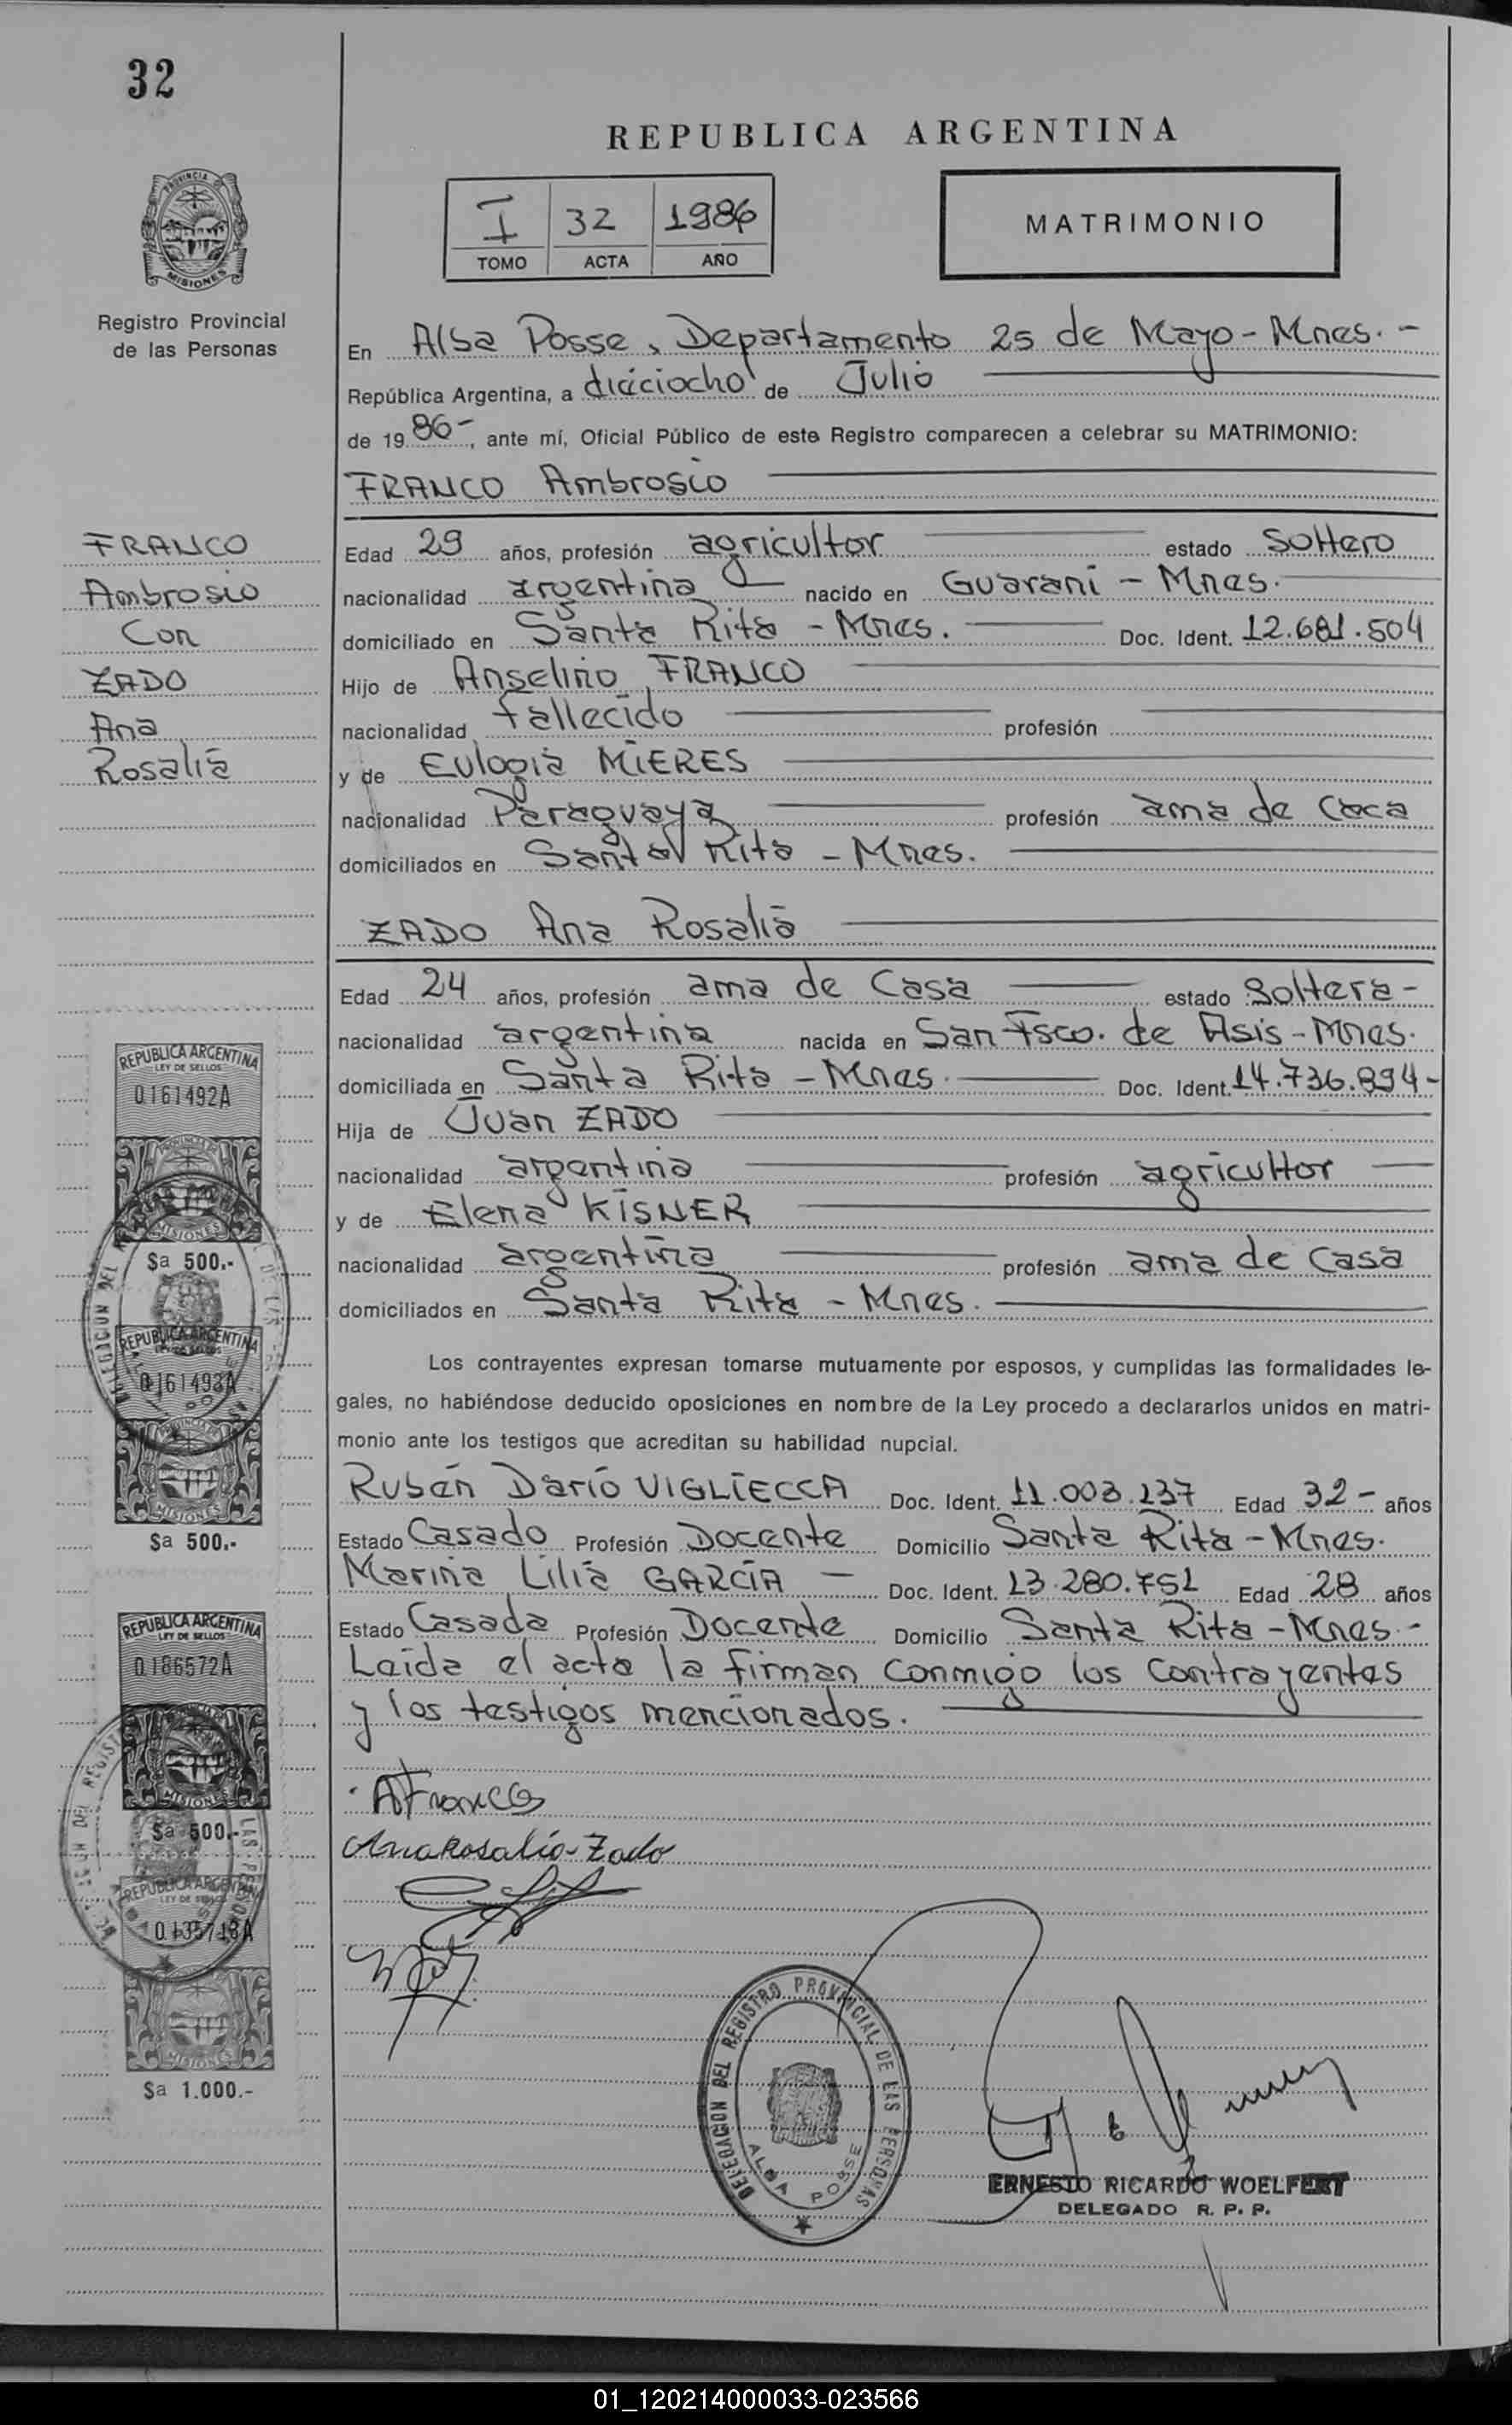 32
REPUBLICA ARGENTINA
PROVINCIA
MISIONES
I 32 1986
TOMO ACTA AÑO
MATRIMONIO
Registro Provincial
de las Personas
En Alba Posse, Departamento 25 de Mayo - Mnes. -
República Argentina, a dieciocho de Julio
de 19 86-, ante mí, Oficial Público de este Registro comparecen a celebrar su MATRIMONIO:
FRANCO Ambrosio
FRANCO
Ambrosio
Con
ZADO
Ana
Rosalia
Edad 29 años, profesión agricultor estado Soltero
nacionalidad argentina nacido en Guarani - Mnes.
domiciliado en Santa Rita - Mnes. Doc. Ident. 12.681.504
Hijo de Anselmo FRANCO
nacionalidad fallecido profesión
y de Eulogia MIERES
nacionalidad Paraguaya profesión ama de Casa
domiciliados en Santa Rita - Mnes.
ZADO Ana Rosalia
Edad 24 años, profesión ama de Casa estado Soltera -
nacionalidad argentina nacida en San Fsco. de Asis - Mnes.
domiciliada en Santa Rita - Mnes. Doc. Ident. 14.736.894 -
Hija de Juan ZADO
nacionalidad argentina profesión agricultor
y de Elena KISNER
nacionalidad argentina profesión ama de Casa
domiciliados en Santa Rita - Mnes.
Los contrayentes expresan tomarse mutuamente por esposos, y cumplidas las formalidades le-
gales, no habiéndose deducido oposiciones en nombre de la Ley procedo a declararlos unidos en matri-
monio ante los testigos que acreditan su habilidad nupcial.
Rubén Darío VIGLIECCA Doc. Ident. 11.003.137 Edad 32 - años
Estado Casado Profesión Docente Domicilio Santa Rita - Mnes.
Marina Lilia GARCÍA - Doc. Ident. 13.280.751 Edad 28 años
Estado Casada Profesión Docente Domicilio Santa Rita - Mnes. -
Leida el acta la firman conmigo los contrayentes
y los testigos mencionados.
AFranco
Ana Rosalia Zado
REPUBLICA ARGENTINA
LEY DE SELLOS
0161492A
MISIONES
$a 500.-
REPUBLICA ARGENTINA
LEY DE SELLOS
0161493A
MISIONES
$a 500.-
REPUBLICA ARGENTINA
LEY DE SELLOS
0186572A
MISIONES
$a 500.-
REPUBLICA ARGENTINA
LEY DE SELLOS
0135718A
MISIONES
$a 1.000.-
DELEGACION DEL REGISTRO PROVINCIAL DE LAS PERSONAS
ALBA POSSE
ERNESTO RICARDO WOELFERT
DELEGADO R. P. P.
01_120214000033-023566